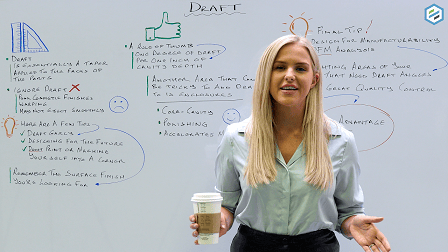 DRAFT
• DRAFT
IS ESSENTIALLY A TAPER
APPLIED TO THE FACES OF
THE PARTS
• IGNORE DRAFT
POOR COSMETIC FINISHES
WARPING
MAY NOT EJECT SMOOTHLY
HERE ARE A FEW TIPS
✓ DRAFT EARLY
✓ DESIGNING FOR THE FUTURE
✓ DON'T PRINT OR MACHINE
YOURSELF INTO A CORNER
REMEMBER THE SURFACE FINISH
YOU'RE LOOKING FOR
• A RULE OF THUMB
ONE DEGREE OF DRAFT
FOR ONE INCH OF
CAVITY DEPTH
ANOTHER AREA THAT CAN
BE TRICKY TO ADD
TO IS ENCLOSURES
• CORE CAVITY
• POLISHING
• ACCELERATES
FINAL TIP!
DESIGN FOR MANUFACTURABILITY
DFM ANALYSIS
AREAS OF YOUR
THAT NEED DRAFT ANGLES
GREAT QUALITY CONTROL
ADVANTAGE